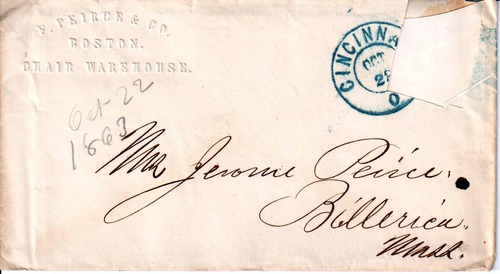 F. PEIRCE & CO.
BOSTON.
CHAIR WAREHOUSE.
CINCINNA
OCT
O
Oct 22
1863
Mrs Jerome Peirce.
Billerica.
Mass.